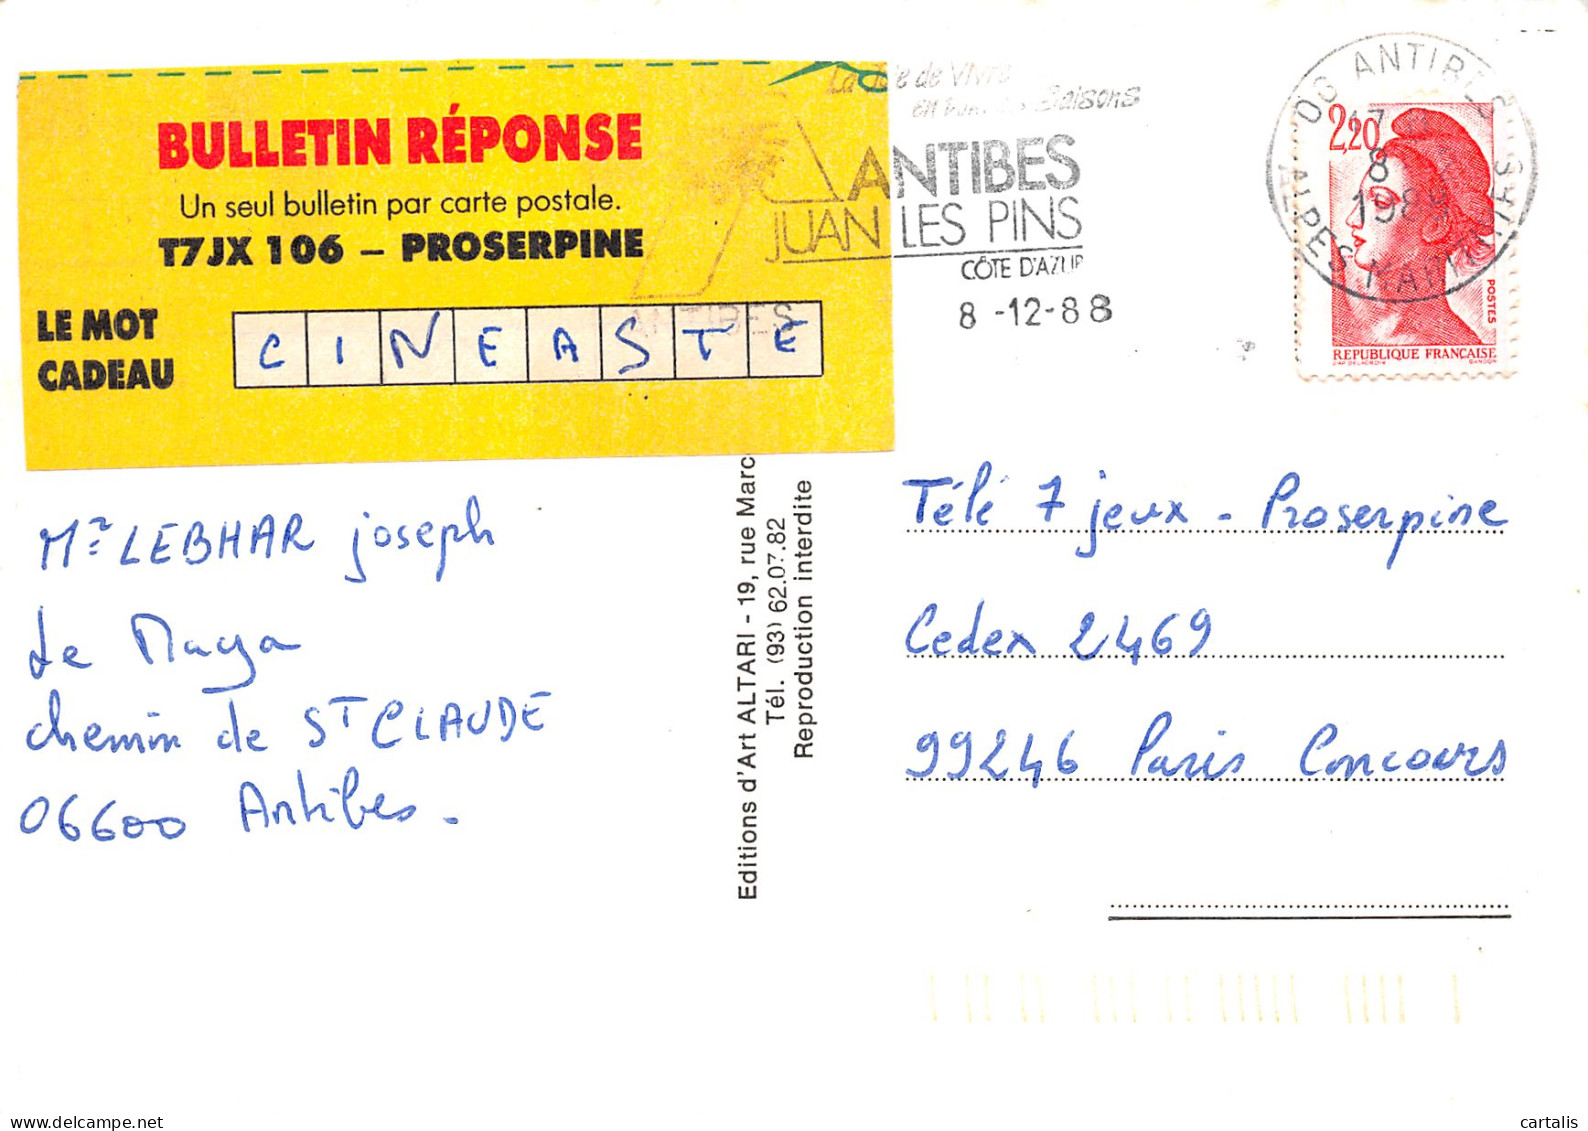 BULLETIN RÉPONSE
Un seul bulletin par carte postale.
T7JX 106 – PROSERPINE
LE MOT
CADEAU
CINEASTE
La Joie de Vivre
en Saisons
ANTIBES
JUAN LES PINS
CÔTE D'AZUR
8 -12-88
ANTIBES
06 ANTIBES
ALPES MARIT
17
8
1989
2,20
POSTES
REPUBLIQUE FRANÇAISE
Mr LEBHAR joseph
Le Maya
chemin de ST CLAUDE
06600 Antibes.
Editions d'Art ALTARI - 19, rue Marc
Tél. (93) 62.07.82
Reproduction interdite
Télé 7 jeux - Proserpine
Cedex 2469
99246 Paris Concours
cartalis
delcampe.net